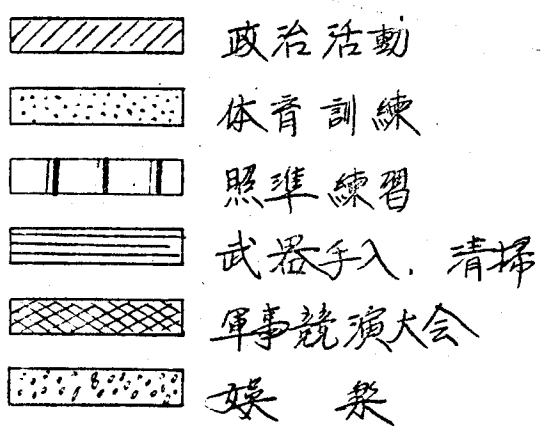 政治活動
体育訓練
照準練習
武器手入、清掃
軍事競演大会
娯楽